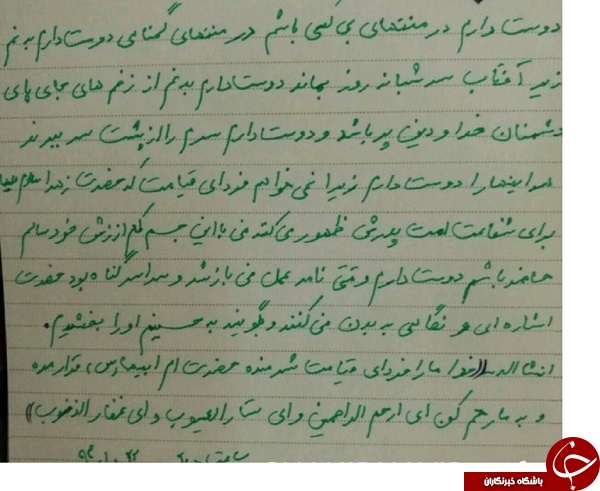 دوست دارم در منتهای بی کسی باشم در منتهای گمنامی دوست دارم بدنم
زیر آفتاب سه شبانه روز بماند دوست دارم بدنم از زخم های جای پای
دشمنان خدا و دین پر باشد و دوست دارم سرم را از پشت سر ببرند
همه اینها را دوست دارم زیرا نمی خواهم فردای قیامت که حضرت زهرا سلام
برای شفاعت امت پدرش ظهور می کند من با این جسم کم ارزش خود سالم
حاضر باشم دوست دارم وقتی نامه عمل من باز شد و سراسر گناه بود حضرت
اشاره ای و نگاهی به بدن من کنند و بگویند به حسینم او را بخشیدم.
انشاالله ((خدا ما را فردای قیامت شرمنده حضرت ام ابیها قرار مده
و به ما رحم کن ای ارحم الراحمین و ای ستار العیوب و ای غفار الذنوب))
باشگاه خبرنگاران